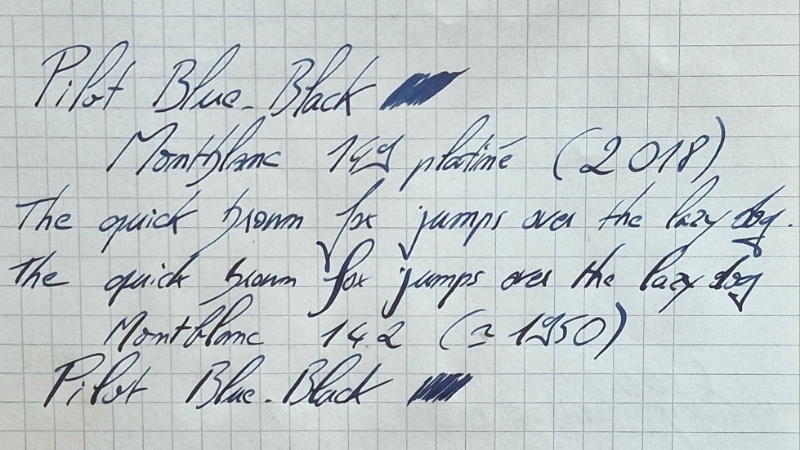 Pilot Blue-Black
Montblanc 149 platiné (2018)
The quick brown fox jumps over the lazy dog.
The quick brown fox jumps over the lazy dog
Montblanc 142 (≃ 1950)
Pilot Blue-Black